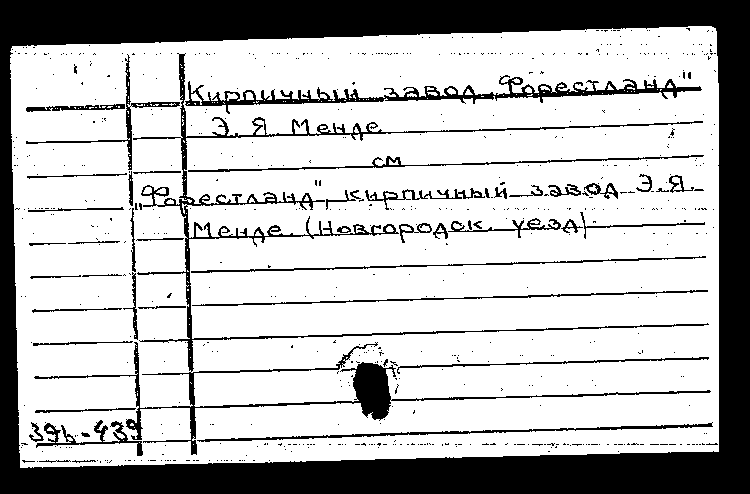 Кирпичный завод „Форестланд"
Э. Я Менде
см
„Форестланд", кирпичный завод Э.Я.
Менде. (Новгородск. уезд).